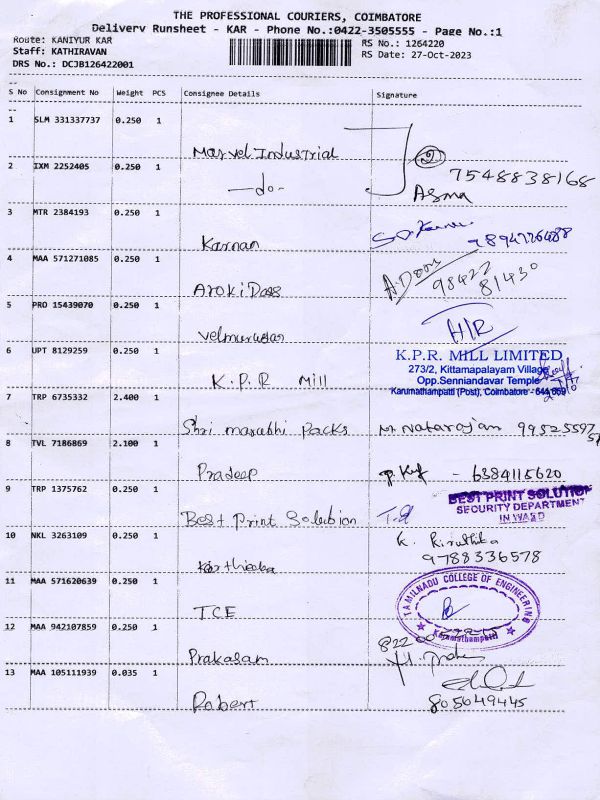 THE PROFESSIONAL COURIERS, COIMBATORE
Delivery Runsheet - KAR - Phone No.:0422-3505555 - Page No.:1
Route: KANIYUR KAR
RS No.: 1264220
Staff: KATHIRAVAN
RS Date: 27-Oct-2023
DRS No.: DCJB126422001
S No Consignment No Weight PCS Consignee Details Signature
1 SLM 331337737 0.250 1
Marvel Industrial
2 IXM 2252405 0.250 1
7548838168
-do-
Asma
3 MTR 2384193 0.250 1
Karnan
9894726488
4 MAA 571271085 0.250 1
A.Doss
98422
81430
Aroki Doss
5 PRO 15439070 0.250 1
H/R
velmurugan
6 UPT 8129259 0.250 1
K.P.R. MILL LIMITED
273/2, Kittampalayam Village
Opp.Senniandavar Temple
K.P.R Mill
Karumathampatti (Post), Coimbatore - 641 659
7 TRP 6735433 2.400 1
Shri marabhi Packs
M. Natarajan 99525597
8 TVL 7186869 2.100 1
Pradeep
- 6384115620
9 TRP 1375762 0.250 1
BEST PRINT SOLUTION
SECURITY DEPARTMENT
IN WARD
Best Print Solection
10 NKL 3263109 0.250 1
K. Kiruthika
9788336578
11 MAA 571620639 0.250 1
TAMILNADU COLLEGE OF ENGINEERING
TCE
Karumathampatti
12 MAA 942107859 0.250 1
Prakasam
13 MAA 105111939 0.035 1
Robert
805649445